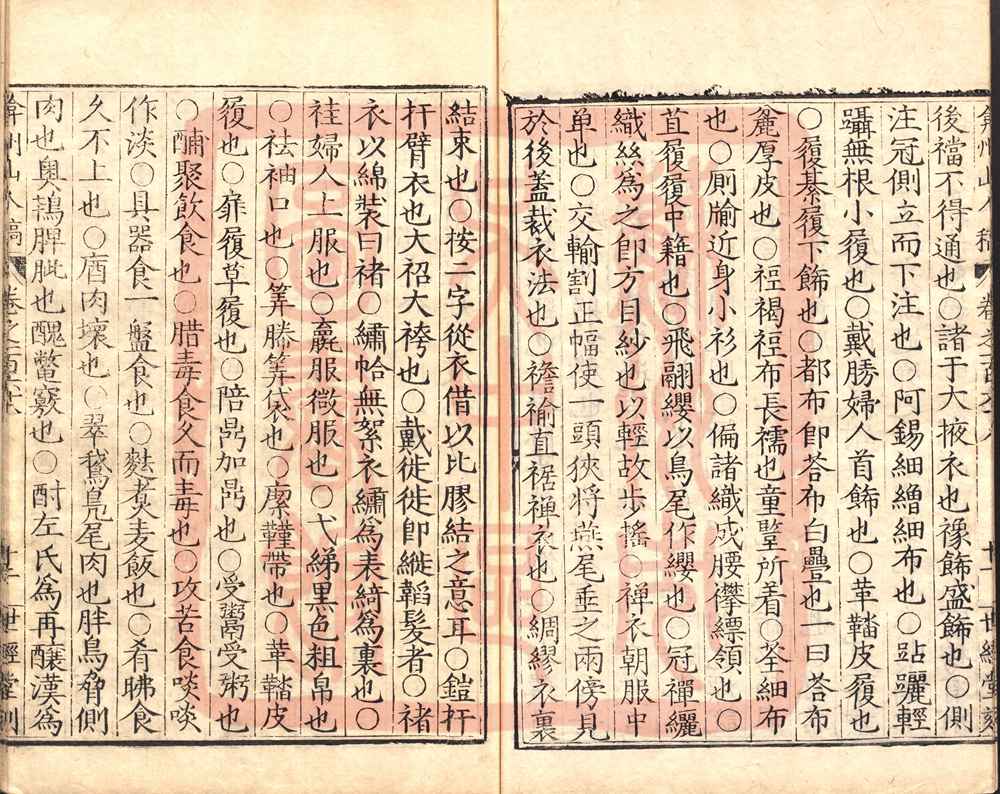 弇州山人稿 卷之一百六十八 廿一 世經堂刻
後襠不得通也○諸于大掖衣也襐飾盛飾也○側
注冠側立而下注也○阿錫細繒細布也○跕躧輕
躡無根小履也○戴勝婦人首飾也○革鞜皮履也
○履綦履下飾也○都布卽荅布白疊也一曰荅布
麄厚皮也○裋褐裋布長襦也童豎所着○荃細布
也○厠牏近身小衫也○偏諸織成腰襻縹領也○
苴履履中籍也○飛翮纓以鳥尾作纓也○冠襌纚
織絲爲之卽方目紗也以輕故步搖○襌衣朝服中
单也○交輸割正幅使一頭狹將燕尾垂之兩傍見
於後蓋裁衣法也○襜褕直裾襌衣也○綢繆衣裏
結束也○按二字從衣借以比膠結之意耳○鎧扞
扞臂衣也大袑大袴也○戴縰縰卽縱韜髮者○褚
衣以綿裝曰褚○繡帢無絮衣繡爲表綺爲裏也○
袿婦人上服也○毳服微服也○弋綈黒色粗帛也
○袪袖口也○筭縢筭袋也○縻韈帶也○革鞜皮
履也○扉履草履也○陪鼎加鼎也○受鬻受粥也
○酺聚飲食也○腊毒食久而毒也○攻苦食啖啖
作淡○具器食一盤食也○麩煑麦飯也○肴昲食
久不上也○㾞肉壞也○翠鵞鳧尾肉也胖鳥脅側
肉也奧鵚脾胵也醜鼈竅也○酎左氏爲再釀漢為
弇州山人稿 卷之百六十八 廿二 世經堂刻